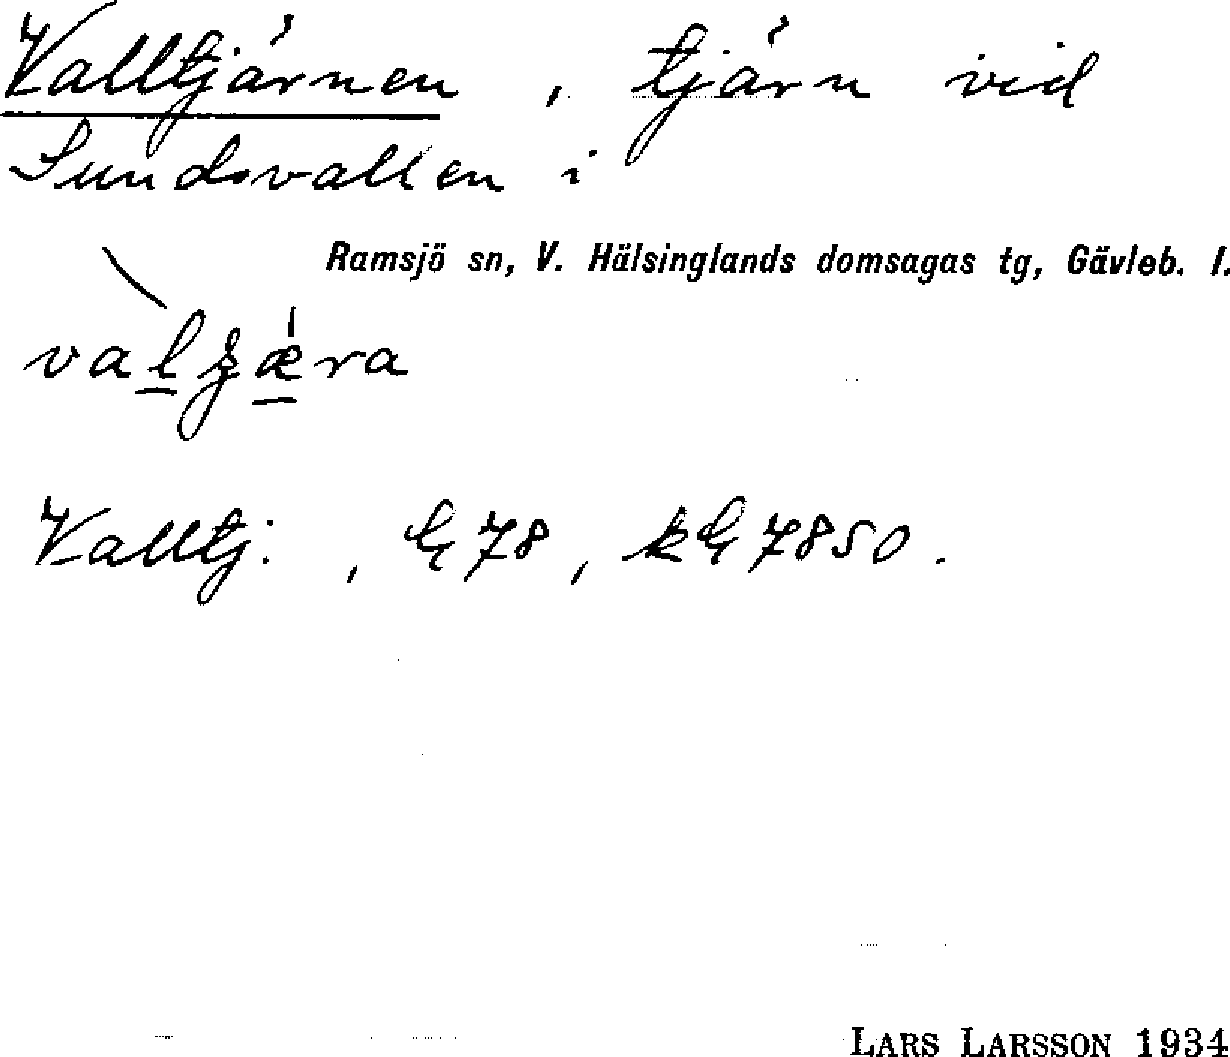 Valltjärnen, tjärn vid
Sundsvallen i
Ramsjö sn, V. Hälsinglands domsagas tg, Gävleb. l.
Valltj: , G 78, kG 7850.
LARS LARSSON 1934